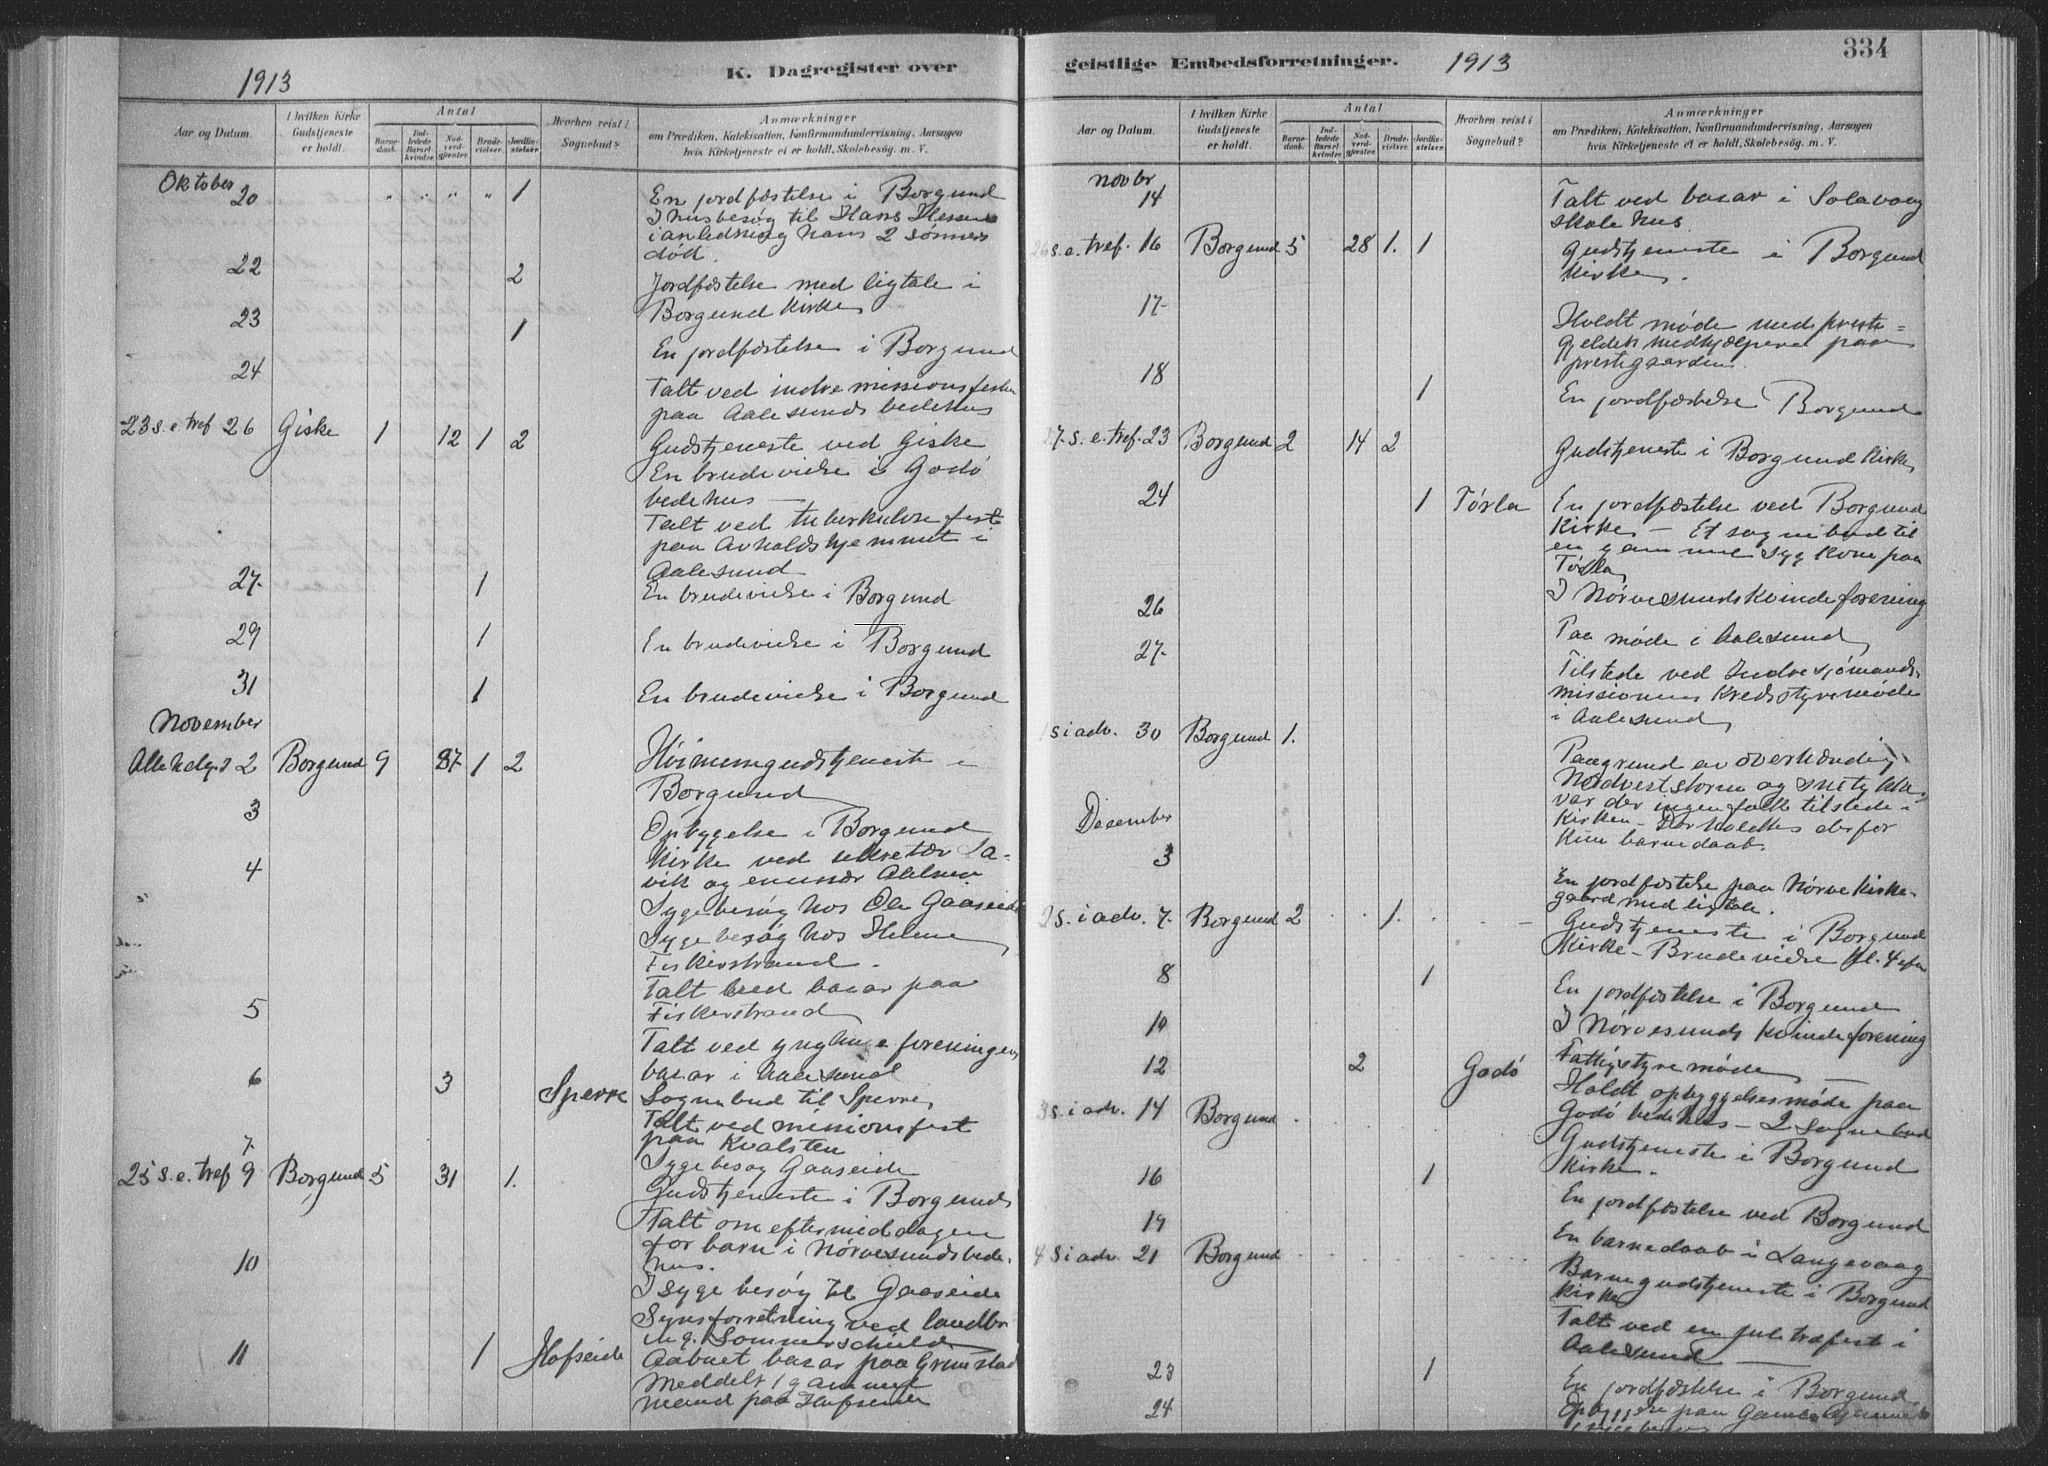 1913
K. Dagregister over
Aar og Datum.
I hvilken Kirke Gudstjeneste er holdt.
Antal
Barnedaab.
Indledede Barselkvinder.
Nadverdgjester.
Brudevielser.
Jordfæstelser.
Hvorhen reist i Sognebud?
Anmærkninger
om Prædiken, Katekisation, Konfirmandundervisning, Aarsagen
hvis Kirketjeneste ei er holdt, Skolebesøg. m. V.
Oktober
20 " " " " 1 En jordfæstelse i Borgund
I husbesøg til Hans
i anledning hans 2 sønners
død.
22 2 Jordfæstelse med ligtale i
Borgund Kirke
23 1 En jordfæstelse i Borgund
24 Talt ved indre missionsfesten
paa Aalesunds bedehus
23 s. e. tref 26 Giske 1 12 1 2 Gudstjeneste ved Giske
En brudevielse i Godö
bedehus —
Talt ved tuberkulosefest
paa Avholdshjemmet i
Aalesund
27. 1 En brudevielse i Borgund
29 1 En brudevielse i Borgund
31 1 En brudevielse i Borgund
November
Alle helg. 2 Borgund 9 37 1 2 Høimessegudstjeneste i
Borgund
3 Opbyggelse i Borgund
Kirke ved sekretær Sa-
vik og emissær
4 Sygebesøg hos Ole Gaaseide
Sygebesøg hos Helene
Fiskerstrand.
Talt ved basar paa
5 Fiskerstrand
Talt ved foreningens
basar i Aalesund
6 3 Sperre Sognebud til Sperre
Talt ved missionsfest
paa Kvalsten
7 Sygebesøg Gaaseide
25 s. e. tref 9 Borgund 5 31 1. Gudstjeneste i Borgund
Talt om eftermiddagen
for barn i Nørvesunds bede-
hus.
10 I sygebesøg til Gaaseide
Synsforretning ved landbr
ing. Sommerschield
11 1 Hofseide Aabnet basar paa Grimstad
Meddelt 1 gammel
mand paa Hofseide
geistlige Embedsforretninger.
1913
334
Aar og Datum.
I hvilken Kirke Gudstjeneste er holdt.
Antal
Barnedaab.
Indledede Barselkvinder.
Nadverdgjester.
Brudevielser.
Jordfæstelser.
Hvorhen reist i Sognebud?
Anmærkninger
om Prædiken, Katekisation, Konfirmandundervisning, Aarsagen
hvis Kirketjeneste ei er holdt, Skolebesøg. m. V.
Novbr
14 Talt ved basar i Solavaag
skolehus
26 s. e. tref. 16 Borgund 5 28 1. 1 Gudstjeneste i Borgund
Kirke.
17. Holdt møde med preste=
gjeldets medhjælpere paa
prestegaarden
18 1 En jordfæstelse Borgund
27. s. e. tref. 23 Borgund 2 14 2 Gudstjeneste i Borgund Kirke
24 1 Tørla En jordfæstelse ved Borgund
Kirke — Et sognebud til
en gammel syg kone paa
Tørla
26 I Nørvesunds kvindeforening
27. Paa møde i Aalesund
Tilstede ved Indre sjømands-
missionens Kredsstyremøde
i Aalesund
1 s i adv. 30 Borgund 1. Paa grund av overhændig
Nordveststorm og snetykke
var der ingen folk tilstede i
Kirken — Der holdtes derfor
kun barnedaab.
December
3 En jordfæstelse paa Nørve Kirke-
gaard med ligtale.
2 s. i adv. 7. Borgund 2 1. Gudstjeneste i Borgund
Kirke — Brudevielse kl. 4 efm
8 1 En jordfæstelse i Borgund
10 I Nørvesunds kvindeforening
12 2 Godö Fattigstyremøde
Holdt opbyggelsesmøde paa
Godö bedehus — 2 sognebud
3 s. i adv. 14 Borgund Gudstjeneste i Borgund
Kirke.
16 1 En jordfæstelse ved Borgund
19 En barnedaab i Langevaag
4 s i adv. 21 Borgund Barnegudstjeneste i Borgund
Kirke
Talt ved en juletræfest i
Aalesund
23 1 En jordfæstelse i Borgund
24 Opbyggelse paa Gamlehjemmet